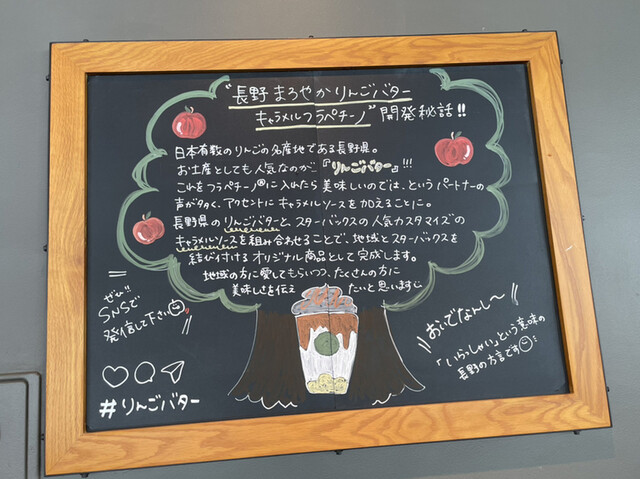 "長野 まろやかりんごバター
キャラメルフラペチーノ" 開発秘話!!
日本有数のりんごの名産地である長野県。
お土産としても人気なのが『りんごバター』!!!
これをフラペチーノ®に入れたら美味しいのでは、というパートナーの
声が多く、アクセントにキャラメルソースを加えることに。
長野県のりんごバターと、スターバックスの人気カスタマイズの
キャラメルソースを組み合わせることで、地域とスターバックスを
結び付けするオリジナル商品として完成します。
地域の方に愛してもらいつつ、たくさんの方に
美味しさを伝え たいと思います
ぜひ!!
SNSで
発信して下さい
#りんごバター
おいでなんし〜
「いらっしゃい」という意味の
長野の方言です